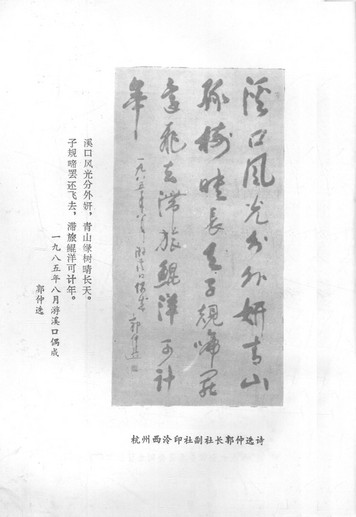 溪口风光分外妍青山
绿树映长天子规啼罢
还飞去滞旅鲲洋可计
年
一九八五年八月游溪口偶成 郭仲选
溪口风光分外妍，青山绿树晴长天。
子规啼罢还飞去，滞旅鲲洋可计年。
一九八五年八月游溪口偶成
郭仲选
杭州西泠印社副社长郭仲选诗